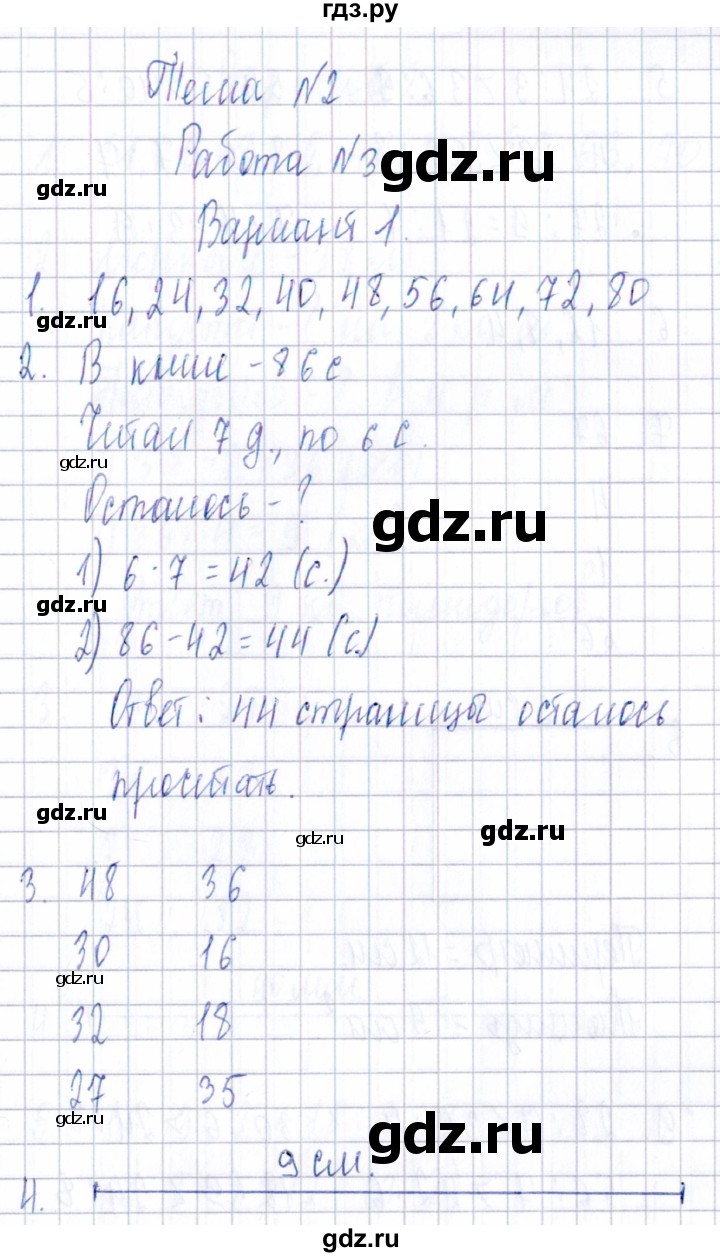 гдз.ру
Тема №2
Работа №3
gdz.ru
gdz.ru
Вариант 1.
1. 16, 24, 32, 40, 48, 56, 64, 72, 80
gdz.ru
2. В книге - 86 с
Читал 7 д., по 6 с.
gdz.ru
Осталось - ?
gdz.ru
1) 6 · 7 = 42 (с.)
gdz.ru
2) 86 - 42 = 44 (с.)
Ответ: 44 страницы осталось
прочитать.
gdz.ru
gdz.ru
gdz.ru
3. 48 36
30 16
gdz.ru
32 18
27 35
gdz.ru
gdz.ru
9 см.
4.
gdz.ru